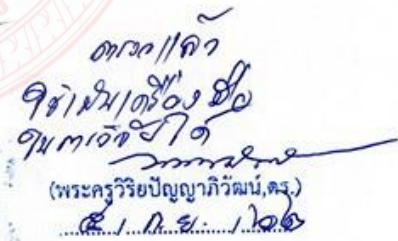 ตรวจแล้ว
ใช้เป็นเครื่องมือ
ในการวิจัยได้
(พระครูวิริยปัญญาภิวัฒน์,ดร.)
๕ / ก.ย. / ๖๒